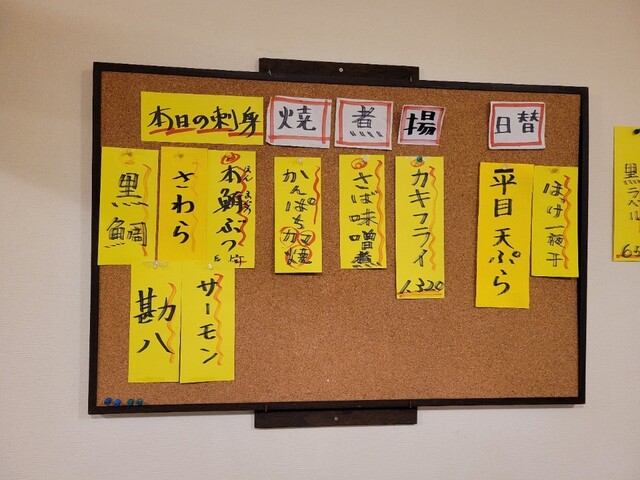 本日の刺身
焼
煮
揚
日替
本鮪ぶつ
さわら
黒鯛
サーモン
勘八
かんぱちカマ焼
さば味噌煮
カキフライ
1,320
ほっけ一夜干
平目天ぷら
黒